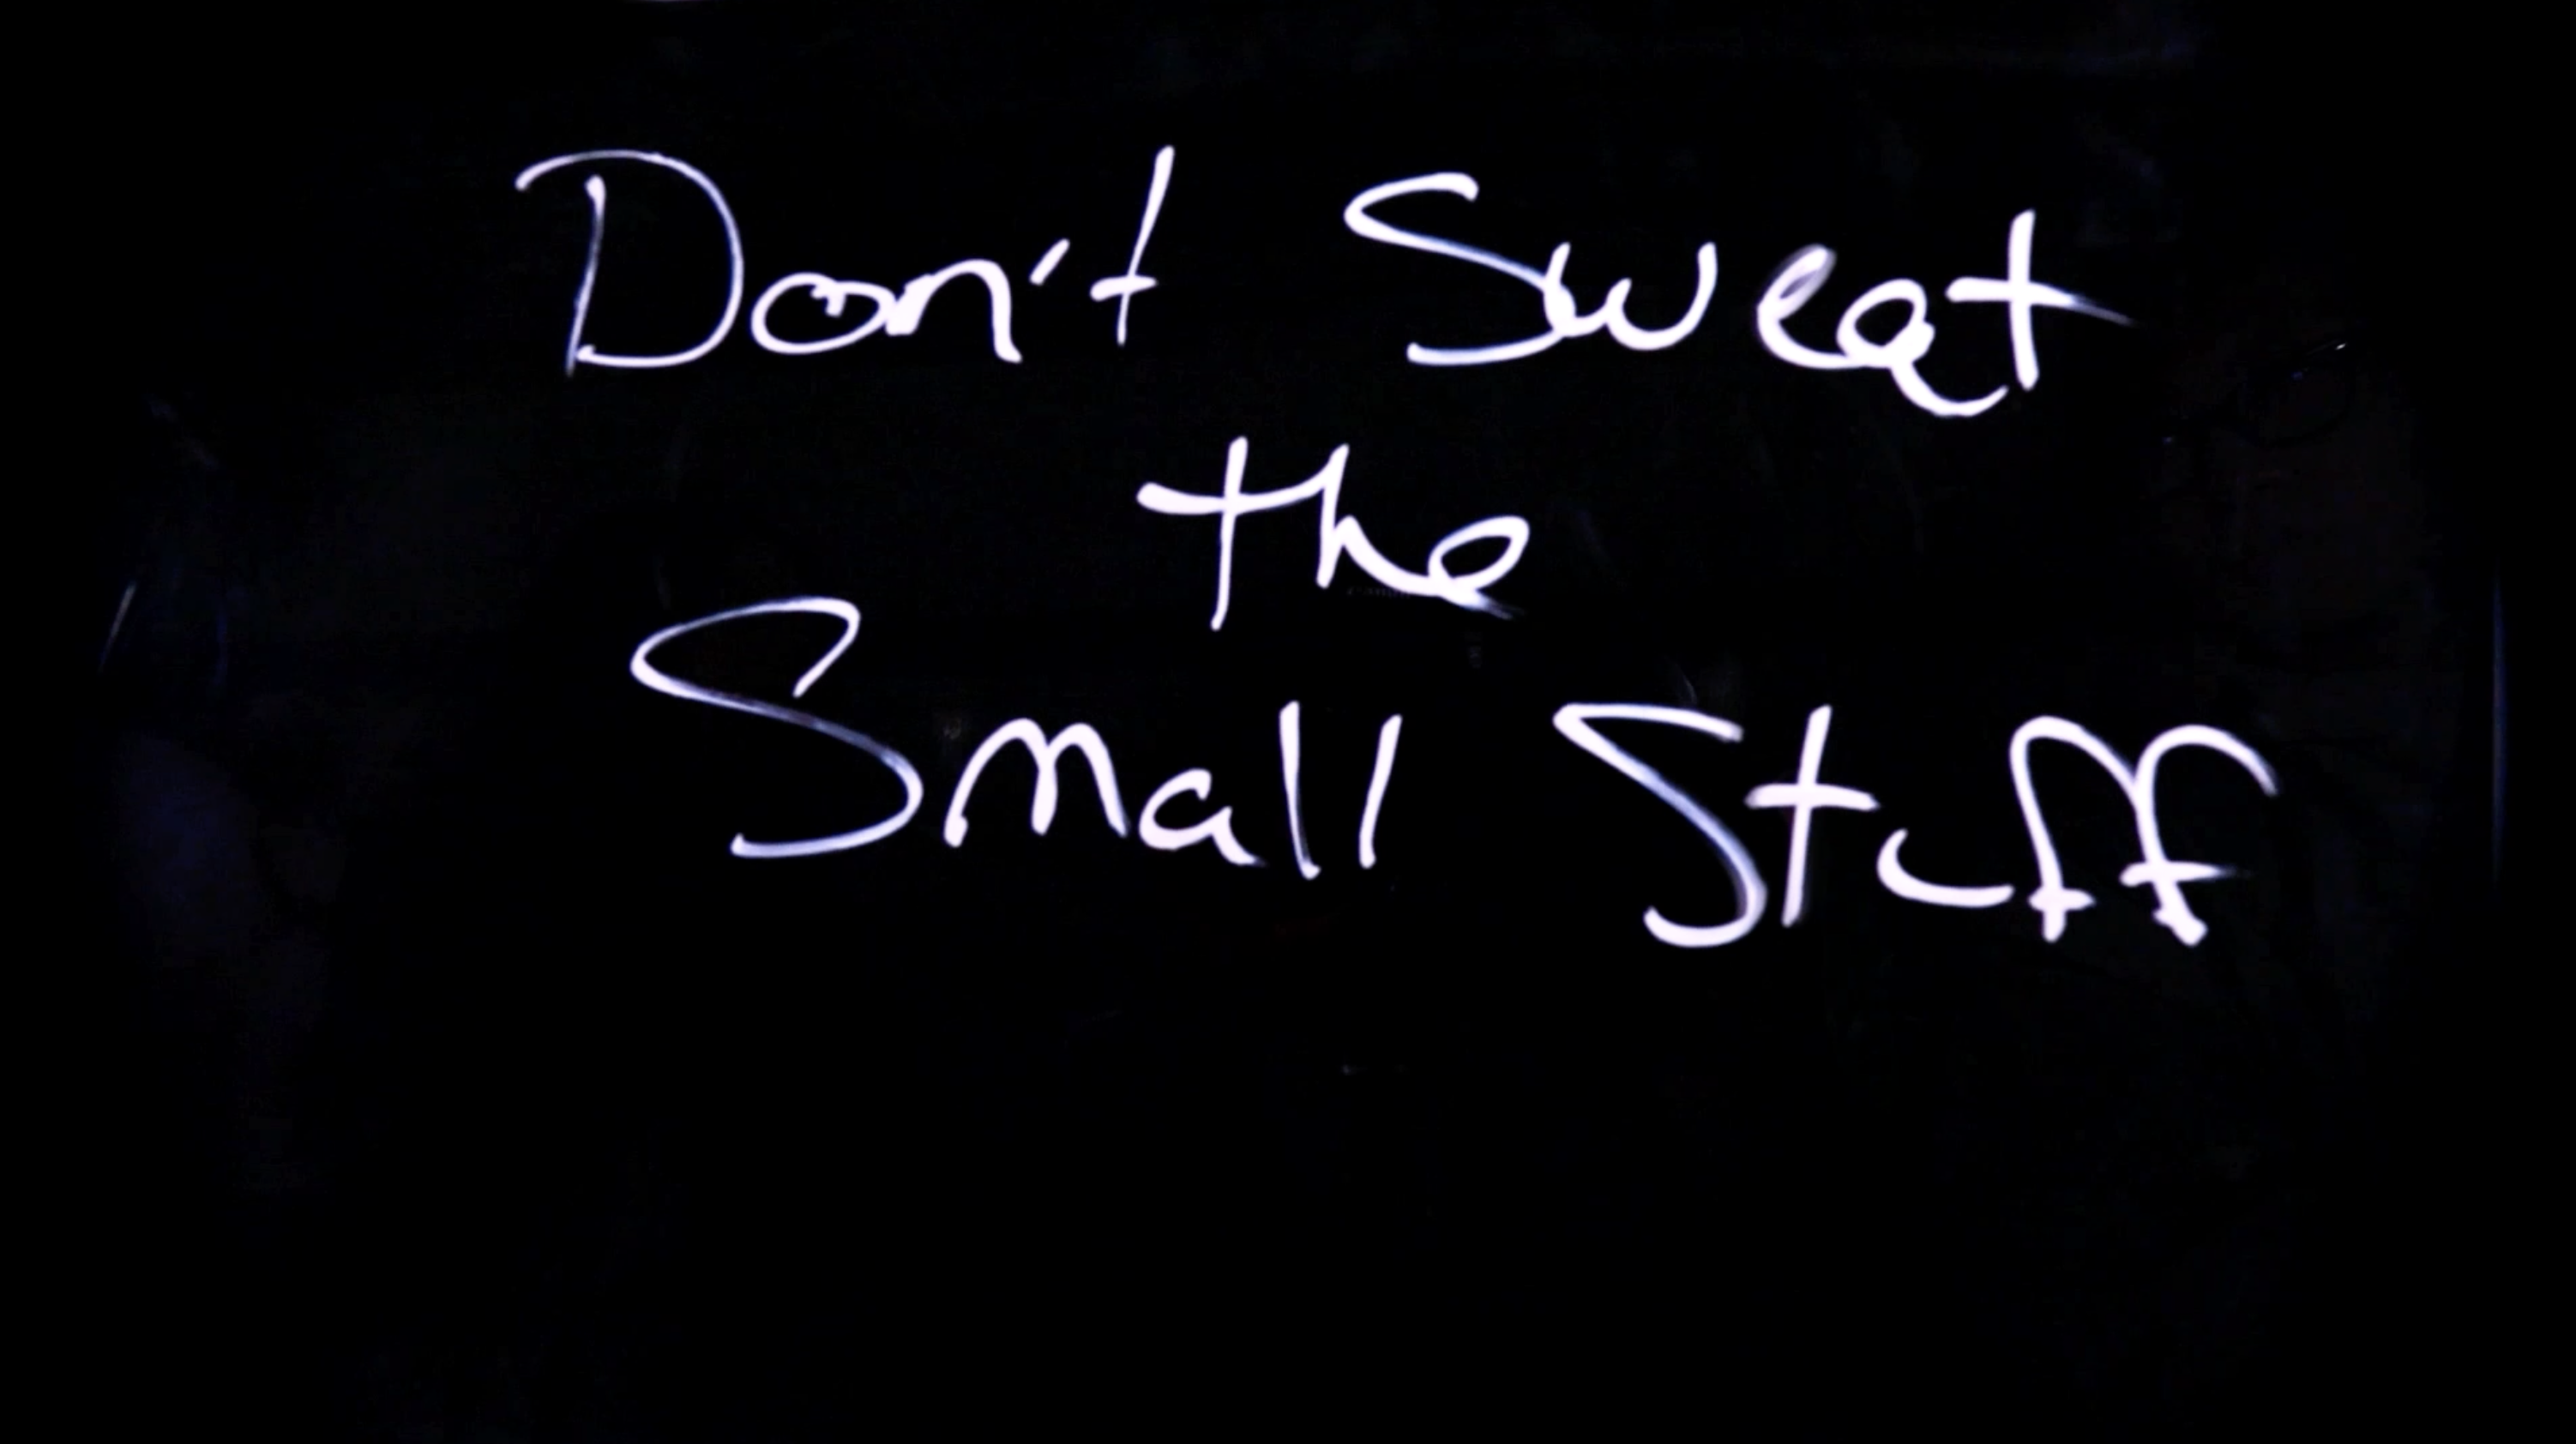 Don't Sweat
the
Small Stuff